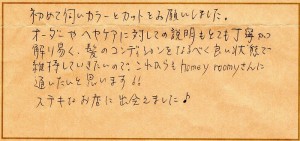 初めて伺いカラーとカットをお願いしました。
オーダーやヘアケアに対しての説明もとても丁寧か
解り易く、髪のコンディションをなるべく良い状態で
維持していきたいので、これからもhomey roomyさんに
通いたいと思います!!
ステキなお店に出会えました♪